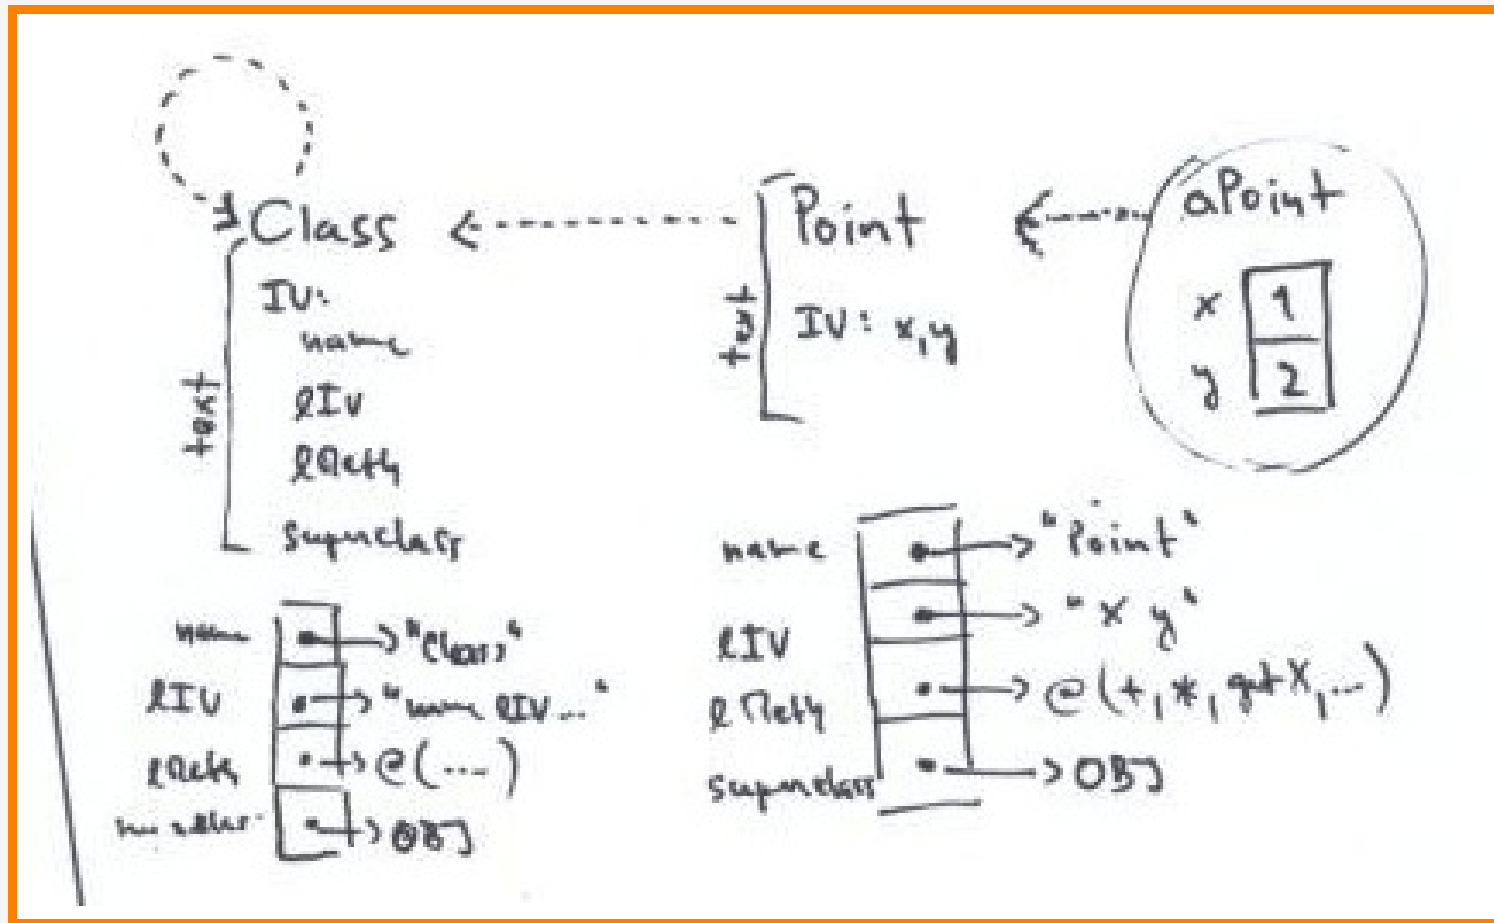 Class
text
IV:
name
lIV
lMeth
superclass
Point
text
IV: x,y
aPoint
x 1
y 2
name "Class"
lIV "... lIV..."
lMeth @(....)
OBJ
name "Point"
lIV "x y"
lMeth @(+,*,getX,...)
superclass OBJ